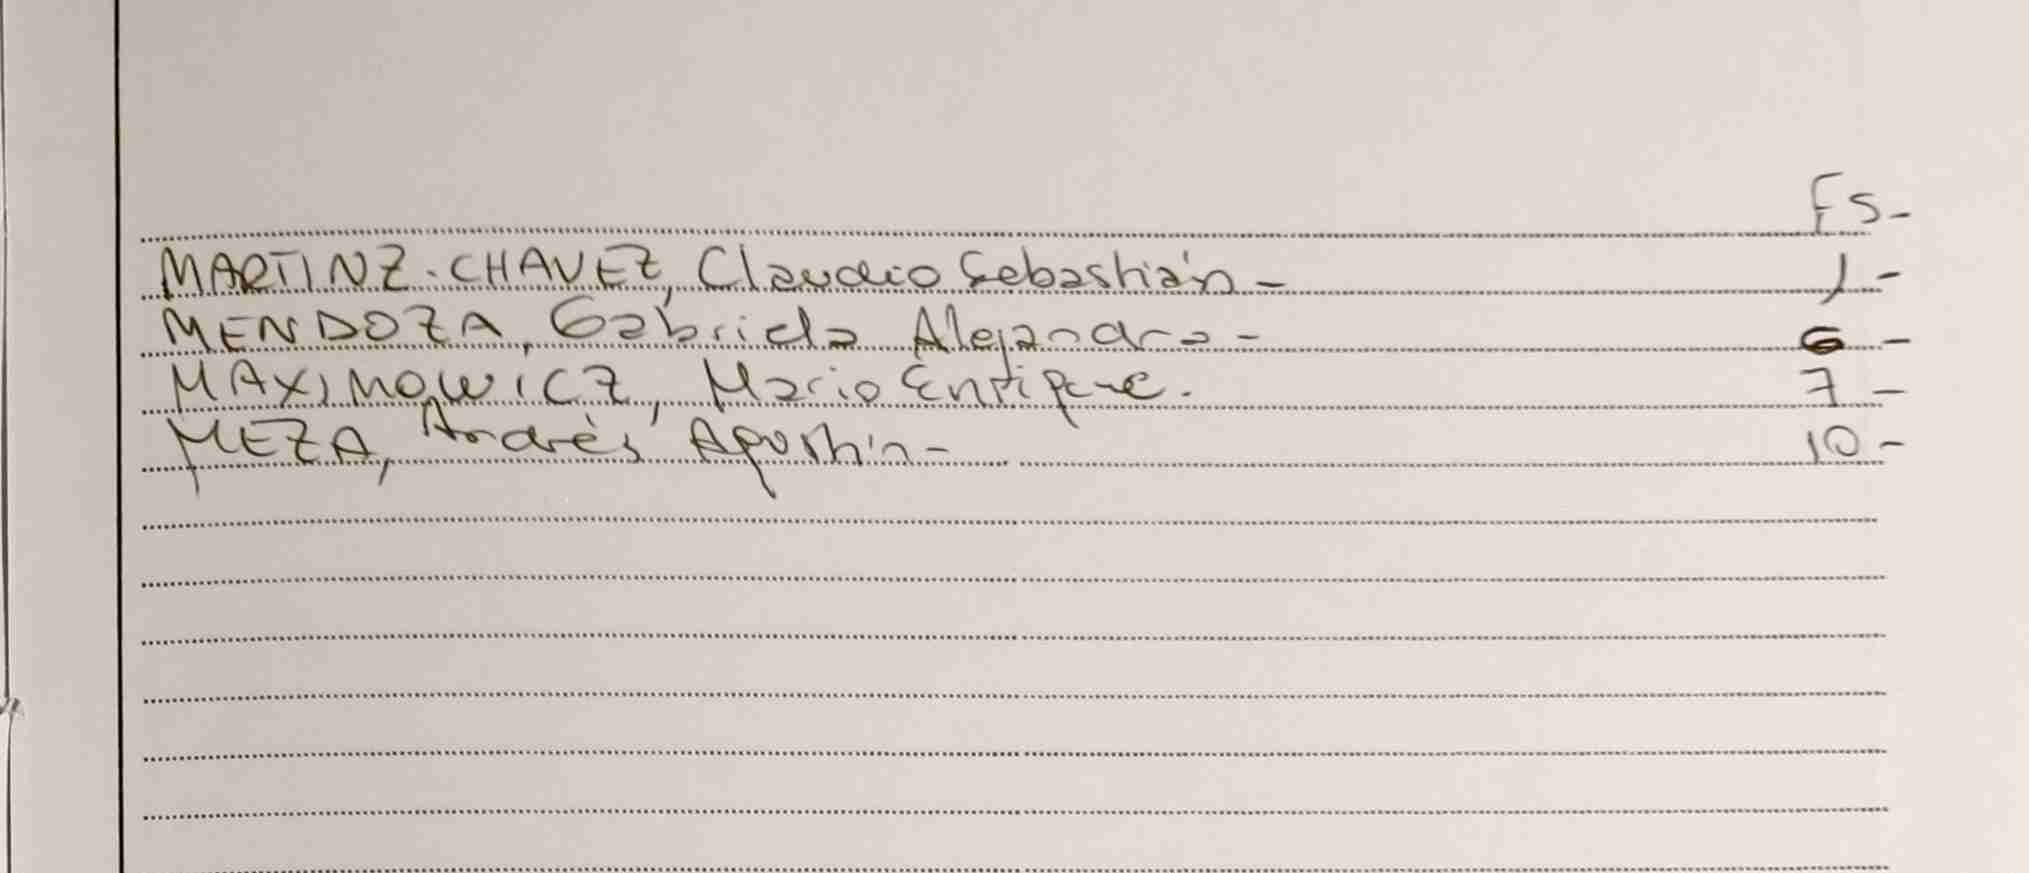 Fs-
MARTINZ-CHAVEZ, Claudio Sebastián- 1-
MENDOZA, Gabriela Alejandra- 6-
MAXIMOWICZ, Mario Enrique. 7-
MEZA, Andrés Agustín- 10-